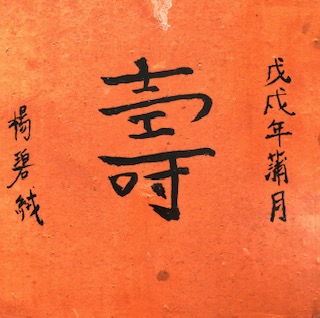 戊戌年蒲月
壽
楊碧絨